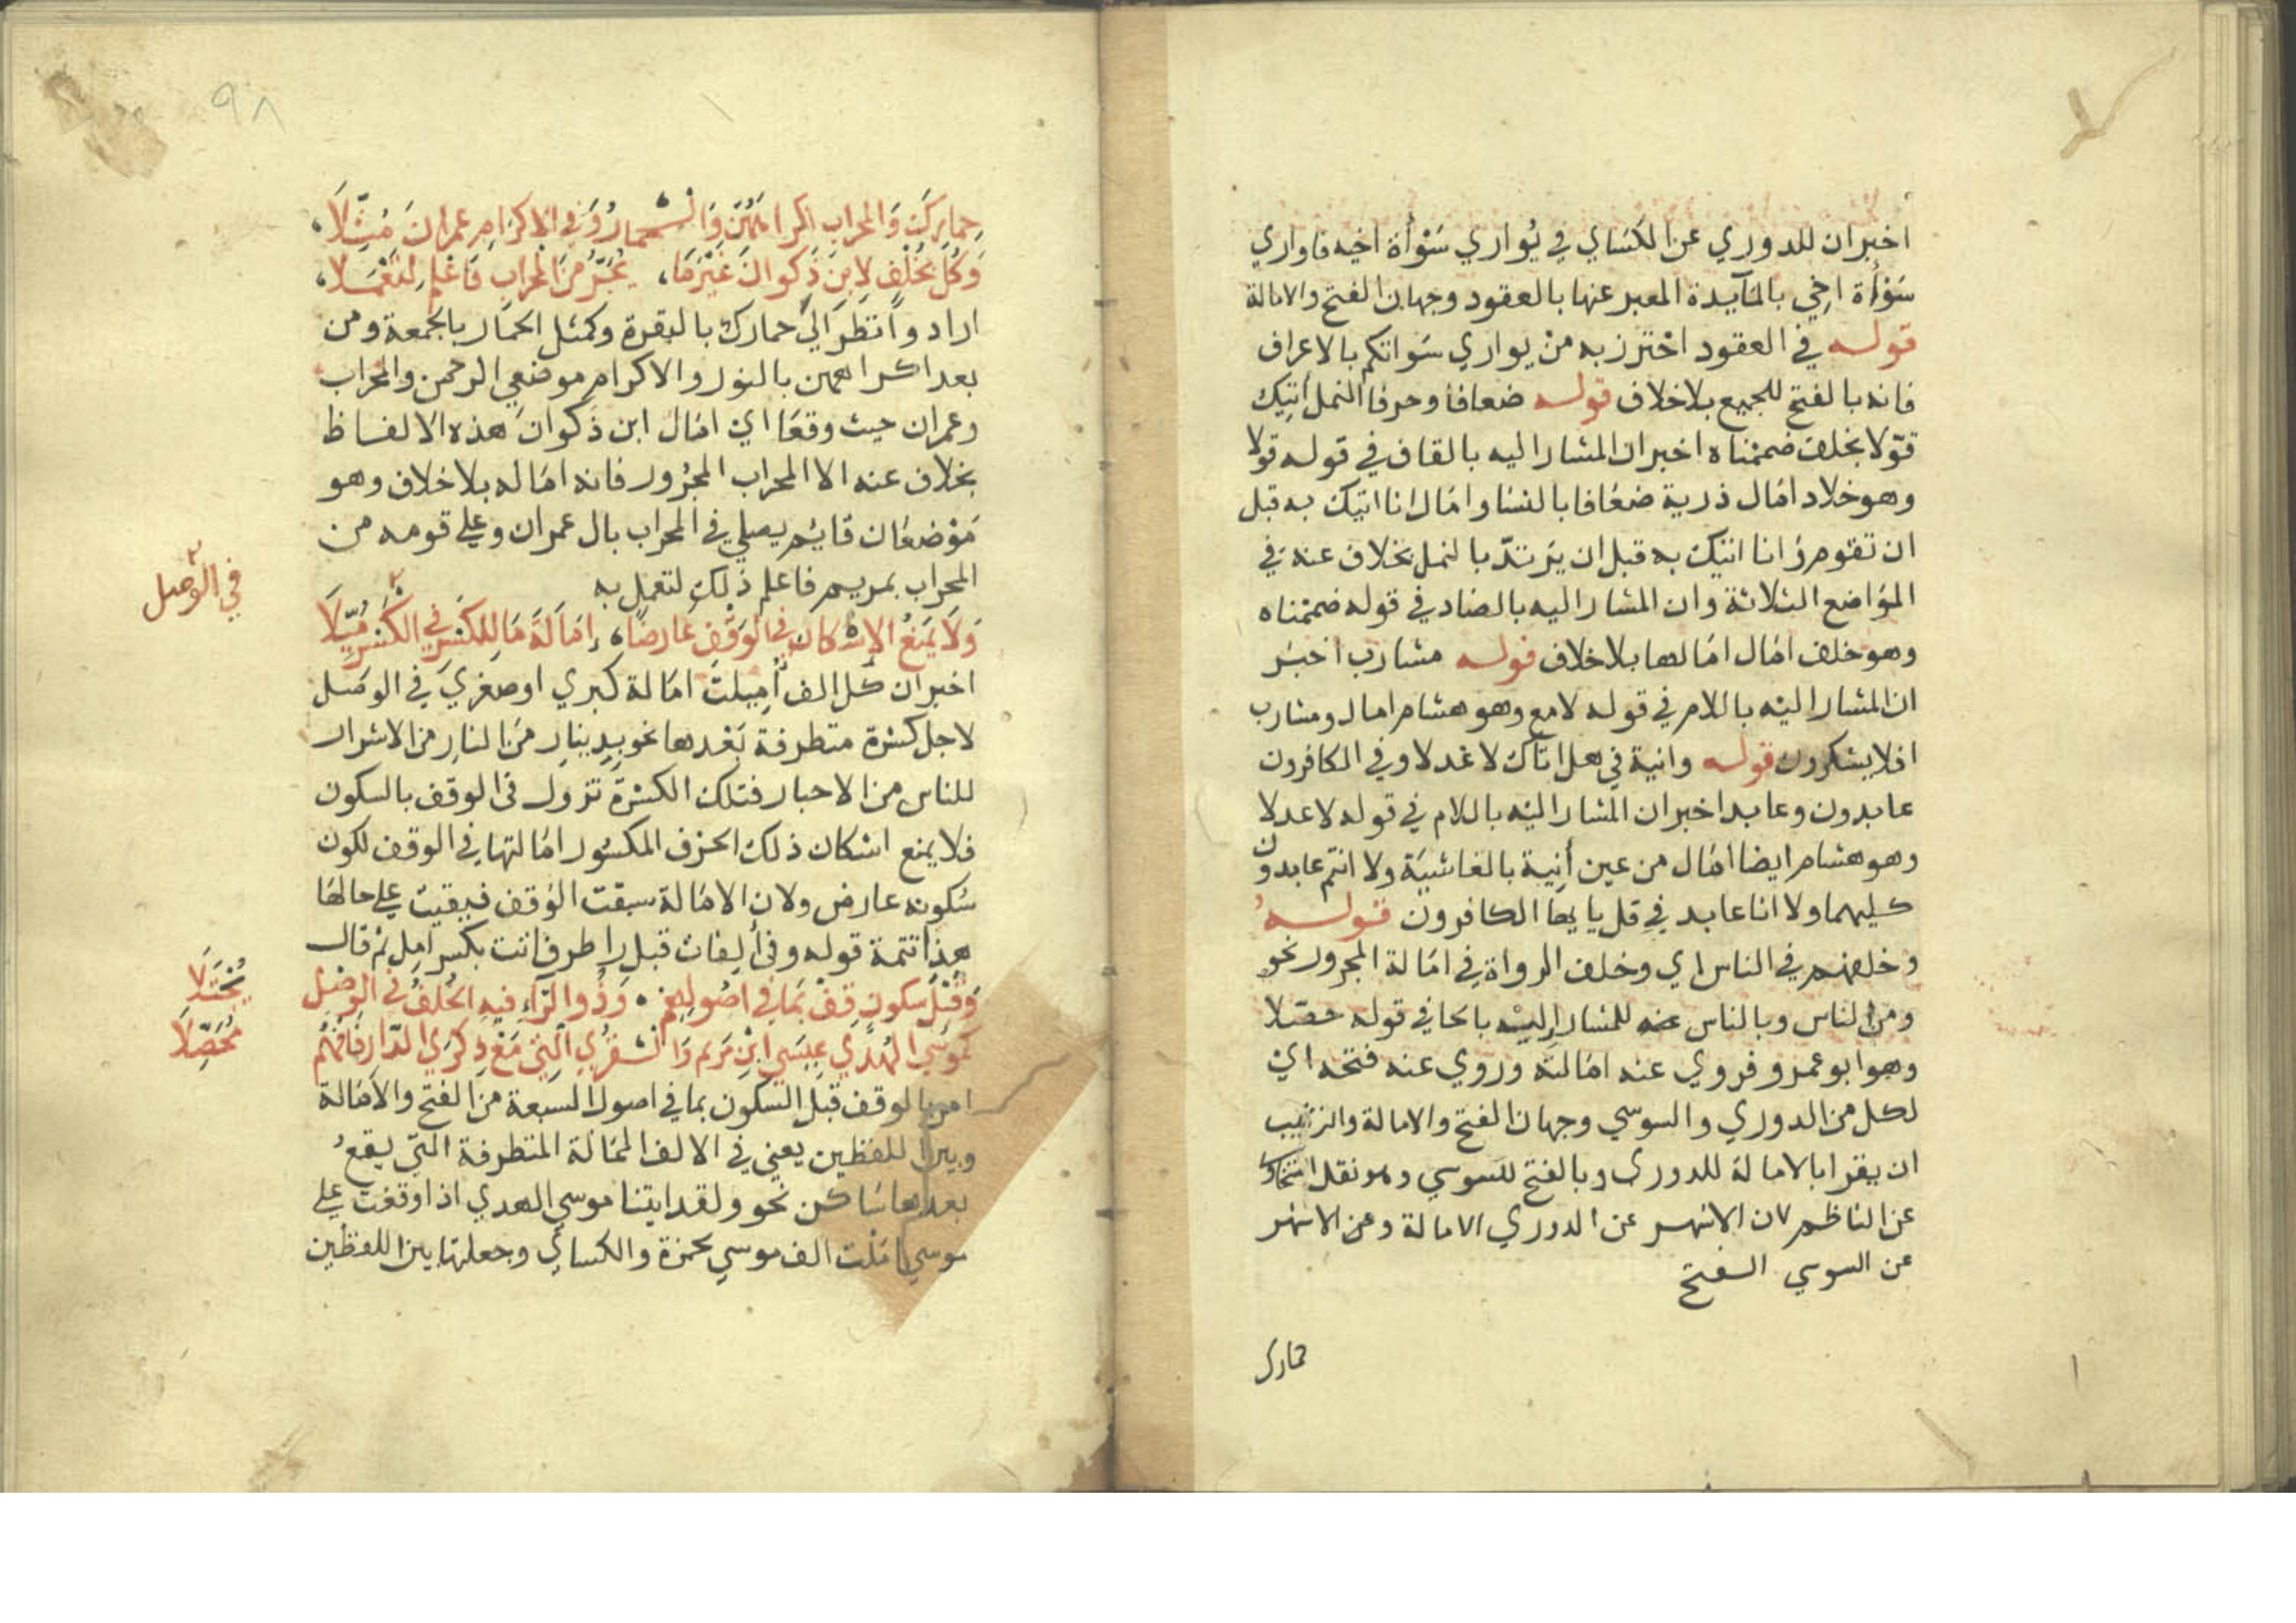 اخبر ان للدوري عن الكساي في يُواري سَوْأة اخيه فاواري
سَوْأة اخي بالمآيدة المعبر عنها بالعقود وجهان الفتح والامالة
قوله في العقود احترز به من يواري سَواتكم بالاعراف
فانه بالفتح للجميع بلاخلاف قوله ضعافا وحرفا النمل أتيك
قوّلا بخلف ضممناه اخبر ان المشار اليه بالقاف في قوله قولا
وهو خلاد امال ذرية ضعافا بالنسا وامال انا اتيك به قبل
ان تقوم وانا اتيك به قبل ان يَرتدّ بالنمل بخلاف عنه في
المواضع الثلاثة وان المشار اليه بالضاد في قوله ضممناه
وهو خلف امال امالها بلاخلاف قوله مشارب اخبر
ان المشار اليه باللام في قوله لامع وهو هشام امال ومشارب
افلا يشكرون قوله وانية في هل اتاك لاعدلا وفي الكافرون
عابدون وعابد اخبر ان المشار اليه باللام في قوله لاعدلا
وهو هشام ايضا امال من عين أنية بالغاشية ولا انتم عابدون
كليهما ولا انا عابد في قل يايها الكافرون قوله
وخلفهم في الناس اي وخلف الرواة في امالة المجرور نحو
ومن الناس وبالناس عنه للمشار اليه بالحا في قوله حصّلا
وهو ابو عمرو فروي عنه امالته وروي عنه فتحه اي
لكل من الدوري والسوسي وجهان الفتح والامالة والترتيب
ان يقرا بالامالة للدوري وبالفتح للسوسي وهو نقل السخاوي
عن الناظم لان الاشهر عن الدوري الامالة وعن الاشهر
عن السوسي الفتح
حمارك
٩٨
حِمارِكَ وَالمحراب اكراهِهِنّ وَالْحمارُ وَفي الاكرَامِ عمرانَ مُثِّلَا
وَكُلّ بخُلْفٍ لابنِ ذَكوانَ غَيْرَمَا، يُجَرُّ منَ المحرابِ فَاعْلم لتَعْمَلا،
اراد وانظر الي حمارك بالبقرة وكمثل الحمار بالجمعة ومن
بعد اكراههن بالنور والاكرام موضعي الرحمن والمحراب
وعمران حيث وقعا اي امال ابن ذكوان هذه الالفاظ
بخلاف عنه الا المحراب المجرُور فانه اماله بلاخلاف وهو
مَوْضعَان قايم يصلي في المحراب بال عمران وعلي قومه من
المحراب بمريم فاعلم ذلك لتعمل به
وَلَا يَمنَعُ الإسكان في الوَقف عَارضًا، إمَالَةَ مَا لِلكَسْرِ في الكَسْرِ مُيِّلَا
في الوصل
اخبر ان كل الف أمِيلت امالة كبري اوصغري في الوصل
لاجل كسْرة متطرفة بَعْدها نحو بدِينارٍ منَ النارِ من الاشرار
للناس من الاحبار فتلك الكسْرة تزول في الوقف بالسكون
فلايمنع اسكان ذلك الحرف المكسُور امالتها في الوقف لكون
سُكونه عارض ولان الامالة سبقت الوقف فبقيت علي حالها
هذا تتمة قوله وفي ألِفات قبل را طرف اتت بكسر امل ثم قال
وَقَبْلَ سكونٍ قِفْ بمَا في اصُولِهِمْ، وَذُو الرّاءِ فيهِ الخُلفُ في الوصْل
يُجْتَلَا
كموسَي الهُدَي عِيسَي ابنِ مَريم وَالْقُرَي التي مَعْ ذِكرَي الدّار فَافْهَمْ
مُحَصِّلَا
امر بالوقف قبل السكون بما في اصول السبعة من الفتح والامالة
وبين اللفظين يعني في الالف الممَالة المتطرفة التي يقعُ
بعدها ساكن نحو ولقد اتينا موسي الهدي اذا وقفت علي
موسي امَلْت الف موسي لحمزة والكسائي وجعلتها بين اللفظين